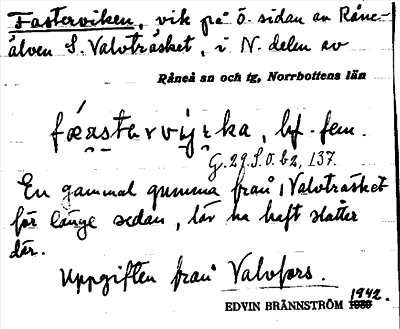 Fasterviken, vik på ö. sidan av Råne-
älven S. Valvträsket, i N. delen av
Råneå sn och tg, Norrbottens län
fǽastərvijka, bf. fem.
G. 29 S. ö. b2, 137.
En gammal gumma från Valvträsket
för länge sedan, lär ha haft slåtter
där.
Uppgiften från Valvfors.
EDVIN BRÄNNSTRÖM 1942.